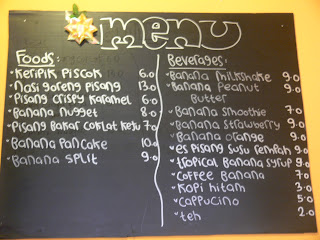 menu
Foods:
Keripik Piscok 6.0
Nasi goreng Pisang 13.0
Pisang Crispy karamel 6.0
Banana Nugget 8.0
Pisang Bakar Coklat Keju 7.0
Banana Pancake 10.0
Banana Split 9.0
Beverages:
Banana Milkshake 9.0
Banana Peanut 9.0
Butter
Banana Smoothie 7.0
Banana Strawberry 9.0
Banana Orange 9.0
es Pisang Susu Rempah 9.0
Tropical Banana Syrup 9.0
Coffee Banana 7.0
Kopi hitam 3.0
Cappucino 5.0
teh 2.0